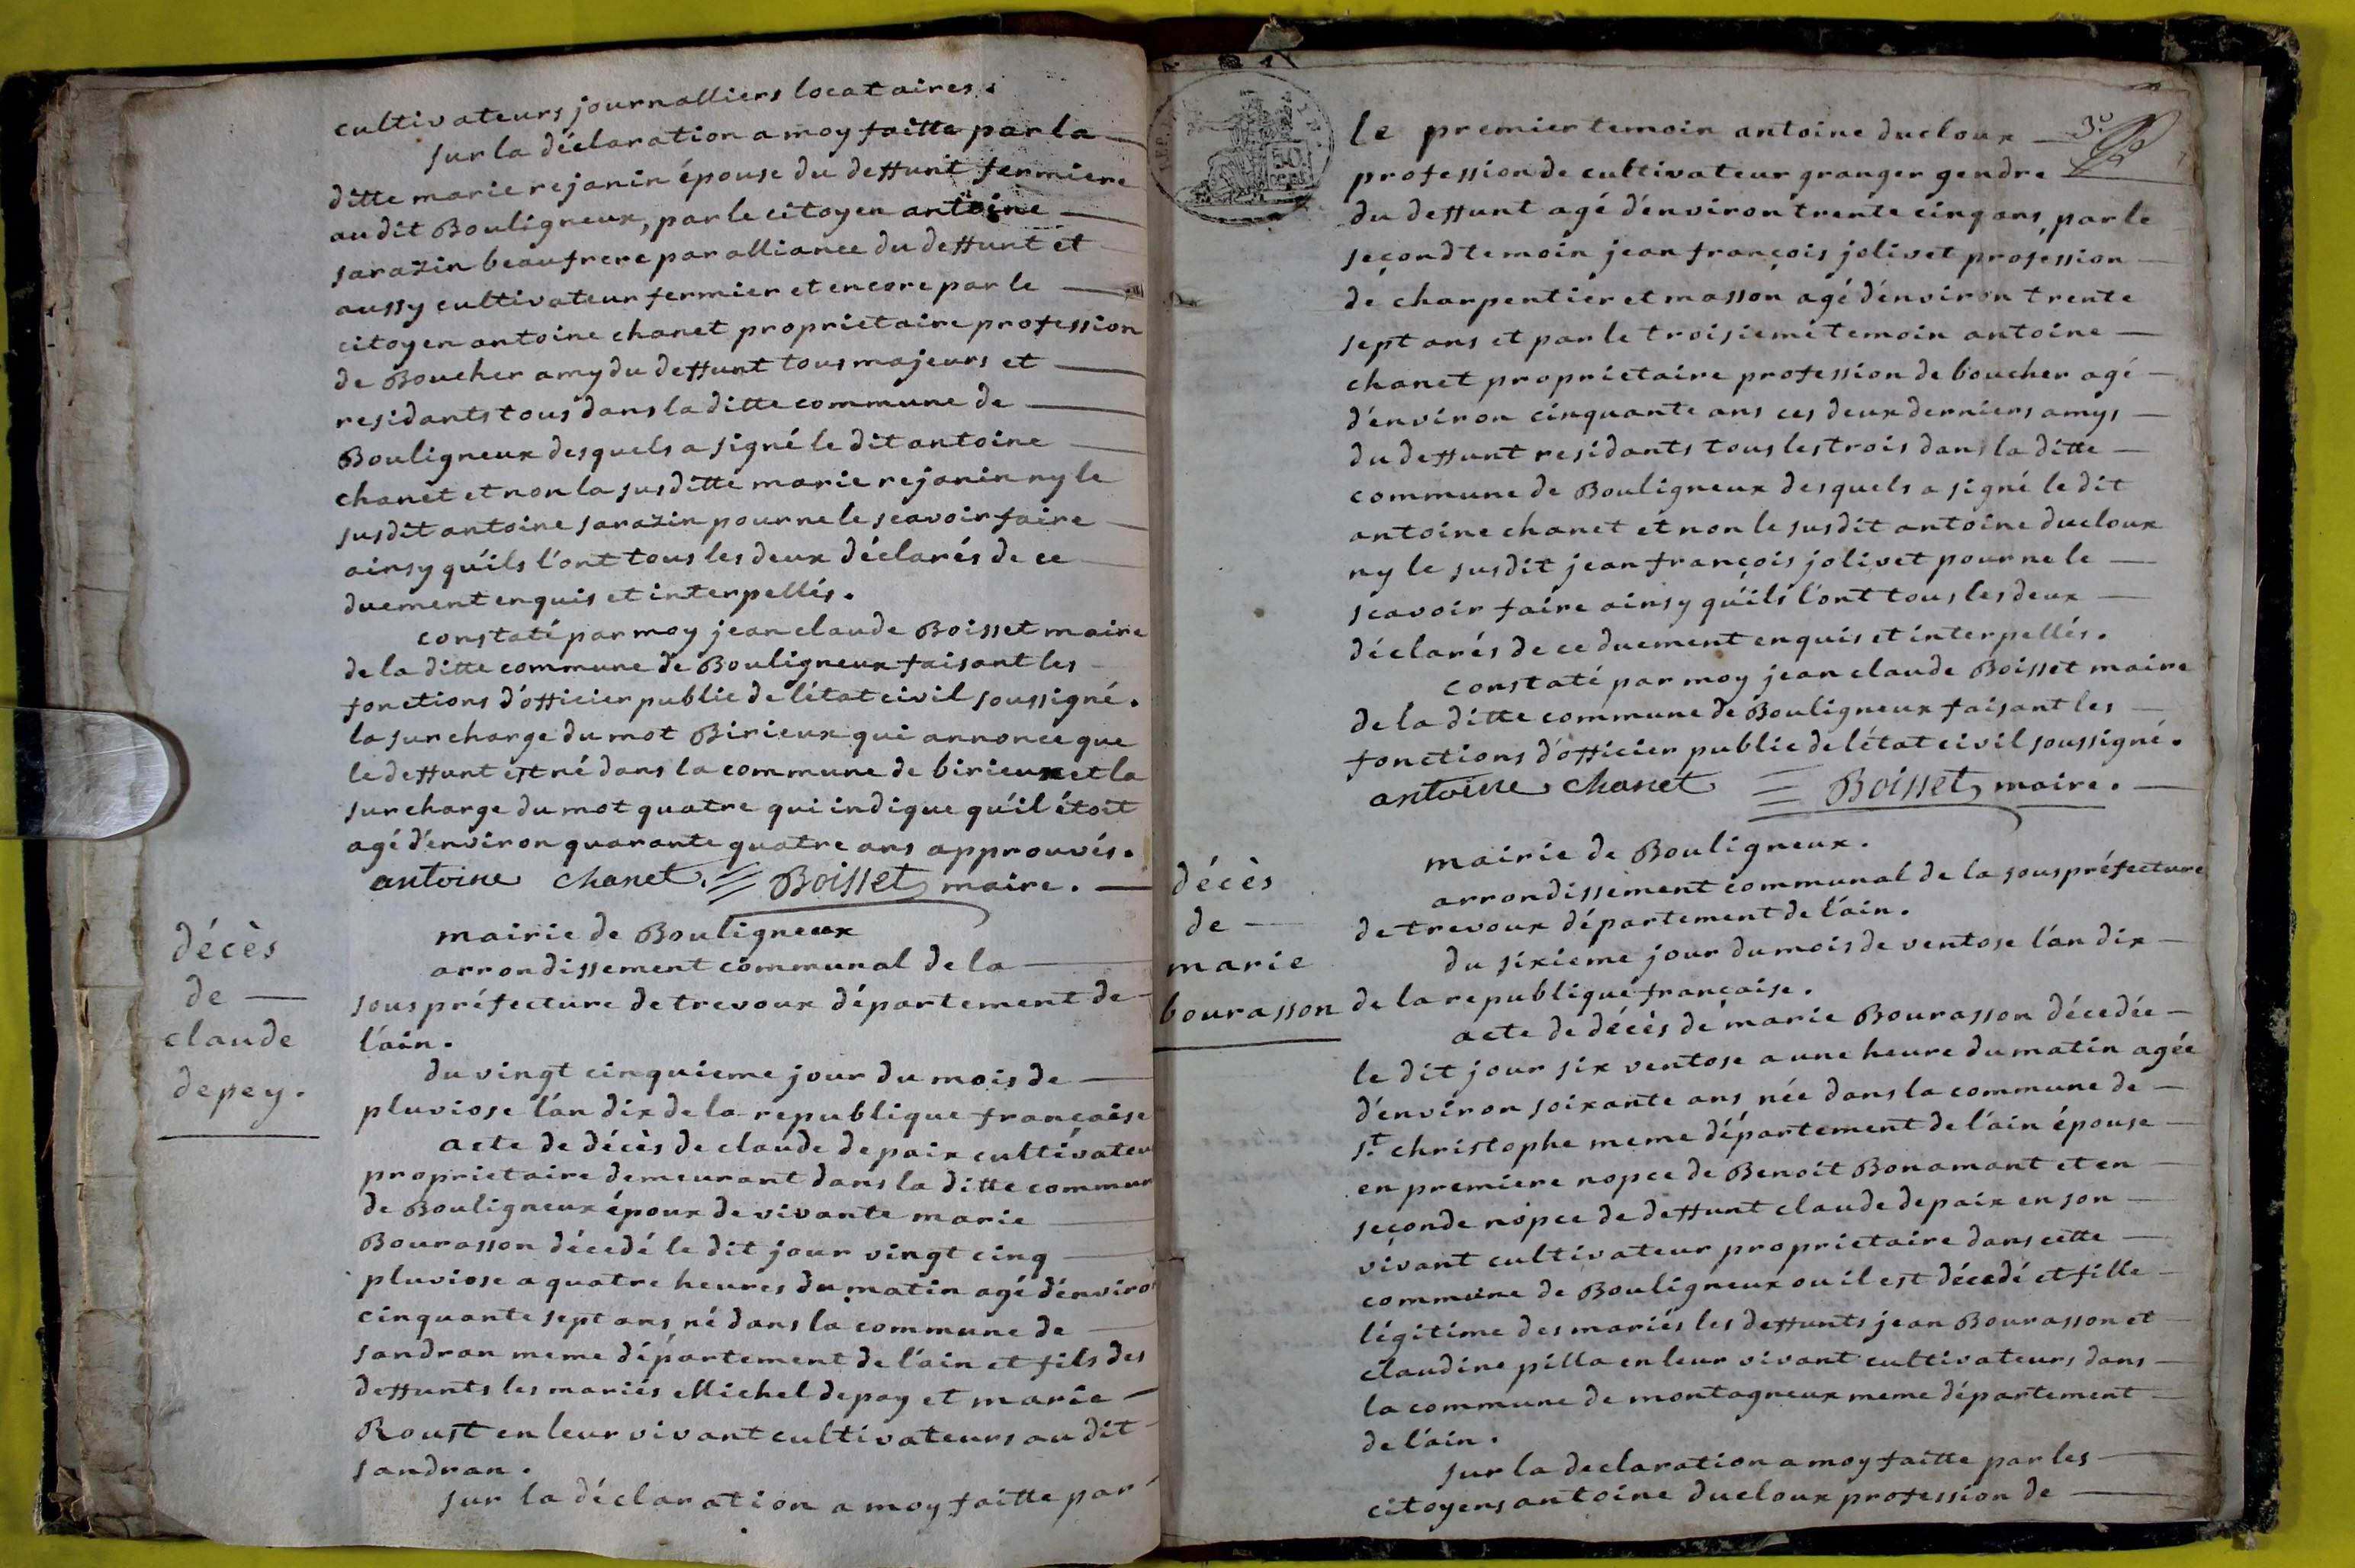 cultivateurs journalliers locataires.
sur la déclaration a moy faitte par la
ditte marie rejanin épouse du deffunt fermiere
au dit Bouligneux, par le citoyen antoine
sarazin beaufrere par alliance du deffunt et
aussy cultivateur fermier et encore par le
citoyen antoine chanet proprietaire profession
de Boucher amy du deffunt tous majeurs et
residants tous dans la ditte commune de
Bouligneux desquels a signé le dit antoine
chanet et non la susditte marie rejanin ny le
susdit antoine sarazin pour ne le scavoir faire
ainsy qu'ils l'ont tous les deux déclarés de ce
duement enquis et interpellés.
constaté par moy jean claude Boisset maire
de la ditte commune de Bouligneux faisant les
fonctions d'officier public de l'état civil soussigné.
la surcharge du mot Birieux qui annonce que
le deffunt est né dans la commune de birieux et la
surcharge du mot quatre qui indique qu'il étoit
agé d'environ quarante quatre ans approuvés.
antoine chanet. Boisset maire.
décès
de
claude
depey.
mairie de Bouligneux
arrondissement communal de la
sous préfecture de trevoux département de
l'ain.
du vingt cinquieme jour du mois de
pluviose l'an dix de la republique française
acte de décès de claude depaix cultivateu
proprietaire demeurant dans la ditte commun
de Bouligneux époux de vivante marie
Bourasson décedé le dit jour vingt cinq
pluviose a quatre heures du matin agé d'enviro
cinquante sept ans né dans la commune de
sandran meme département de l'ain et fils des
deffunts les mariés Michel depay et marie
Roust en leur vivant cultivateurs au dit
sandran.
sur la déclaration a moy faitte par
3e
le premier temoin antoine ducloux
profession de cultivateur granger gendre
du deffunt agé d'environ trente cinq ans, par le
second temoin jean françois jolivet profession
de charpentier et masson agé d'environ trente
sept ans et par le troisieme temoin antoine
chanet proprietaire profession de boucher agé
d'environ cinquante ans ces deux derniers amys
du deffunt residants tous les trois dans la ditte
commune de Bouligneux desquels a signé le dit
antoine chanet et non le susdit antoine ducloux
ny le susdit jean françois jolivet pour ne le
scavoir faire ainsy qu'ils l'ont tous les deux
déclarés de ce duement enquis et interpellés.
constaté par moy jean claude Boisset maire
de la ditte commune de Bouligneux faisant les
fonctions d'officier public de l'état civil soussigné.
antoine chanet Boisset maire.
décès
de
marie
bourasson
mairie de Bouligneux.
arrondissement communal de la sous préfecture
de trevoux département de l'ain.
du sixieme jour du mois de ventose l'an dix
de la republique française.
acte de décès de marie Bourasson décedée
le dit jour six ventose a une heure du matin agée
d'environ soixante ans née dans la commune de
st. christophe meme département de l'ain épouse
en premiere nopce de Benoit Bonamant et en
seconde nopce de deffunt claude depaix en son
vivant cultivateur proprietaire dans cette
commune de Bouligneux ou il est décedé et fille
légitime des mariés les deffunts jean Bourasson et
claudine pilla en leur vivant cultivateurs dans
la commune de montagneux meme département
de l'ain.
sur la declaration a moy faitte par les
citoyens antoine ducloux profession de